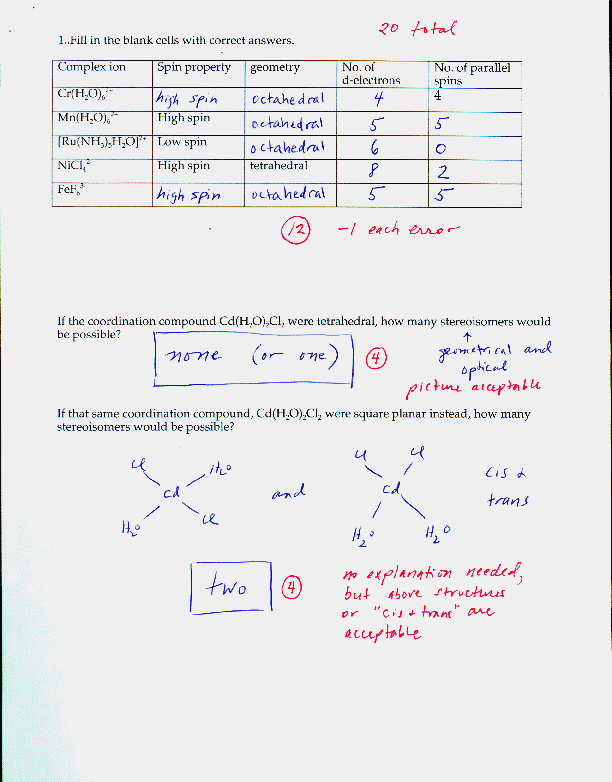 20 total
1..Fill in the blank cells with correct answers.
Complex ion Spin property geometry No. of d-electrons No. of parallel spins
Cr(H₂O)₆²⁺ high spin octahedral 4 4
Mn(H₂O)₆²⁺ High spin octahedral 5 5
[Ru(NH₃)₅H₂O]²⁺ Low spin octahedral 6 0
NiCl₄²⁻ High spin tetrahedral 8 2
FeF₆³⁻ high spin octahedral 5 5
12 -1 each error
If the coordination compound Cd(H₂O)₂Cl₂ were tetrahedral, how many stereoisomers would
be possible?
↑
none (or one) 4 geometrical and
optical
picture acceptable
If that same coordination compound, Cd(H₂O)₂Cl₂ were square planar instead, how many
stereoisomers would be possible?
Cl H₂O Cl Cl
Cd and Cd cis &
trans
H₂O Cl H₂O H₂O
two 4 no explanation needed,
but above structures
or "cis & trans" are
acceptable